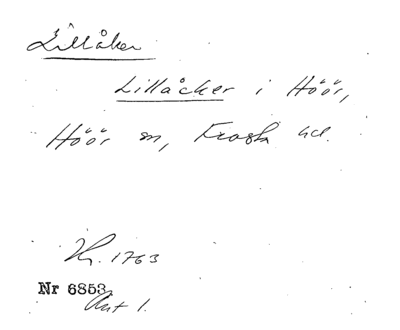 Lillåker
Lillåcker i Höör,
Höör sn, Frosta hd.
Hr. 1763
Nr 6853
Akt 1.